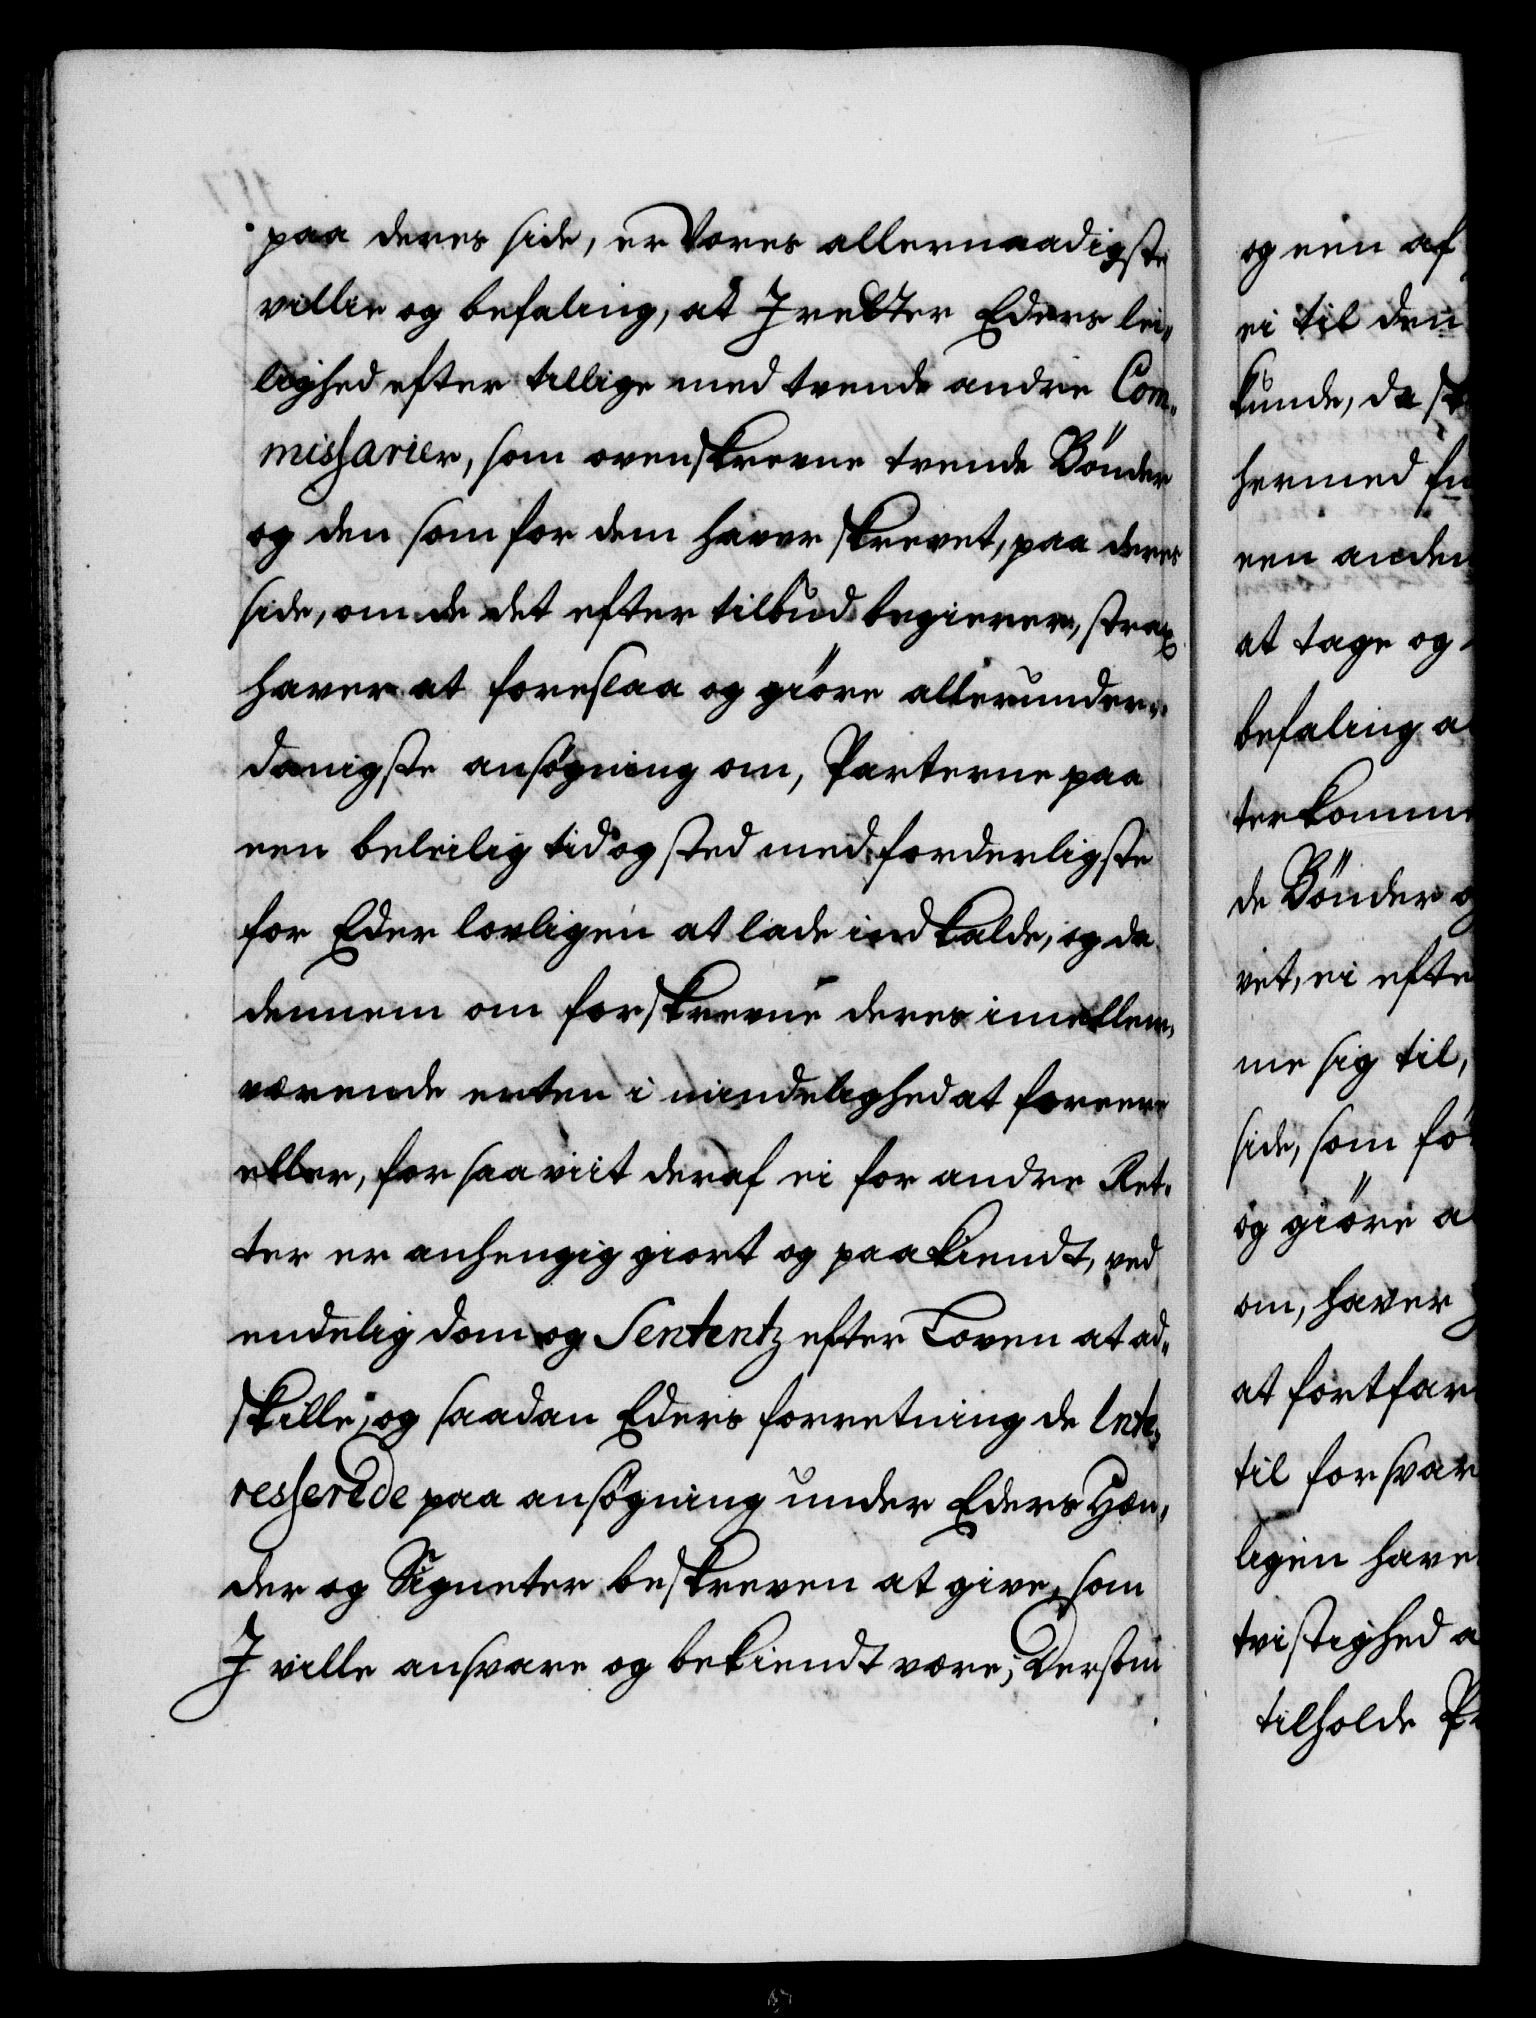 paa deres side, er Vores allernaadigste
villie og befaling, at I retter Eders lei„
lighed efter tillige med tvende andre Com„
missarier, som ovenskrevne tvende Bönder
og den som for dem haver skrevet, paa deres
side, om de det efter tilbud begierer, strax
haver at foreslaa og giöre allerunder„
danigste ansøgning om, Parterne paa
een beleilig tid og sted med forderligste
for Eder lovligen at lade indkalde, og da
dennem om forskrevne deres imellem„
værende enten i mindelighed at foreene
eller, for saa viit deraf ei for andre Ret„
ter er anhengig giort og paakiendt, ved
endelig dom og Sententz efter Loven at ad„
skille, og saadan Eders forretning de Inte„
resserede paa ansøgning under Eders Hæn„
der og Signeter beskreven at give, som
I ville ansvare og bekiendt være; Dersom
og een af
ei til den
kunde, da
hermed
een anden
at tage og
befaling a
terkomme
de Bönder o
vet, ei efte
me sig til,
side, som fö
og giöre a
om, haver
at fortfar
til forsvar
ligen have
tvistighed a
tilholde